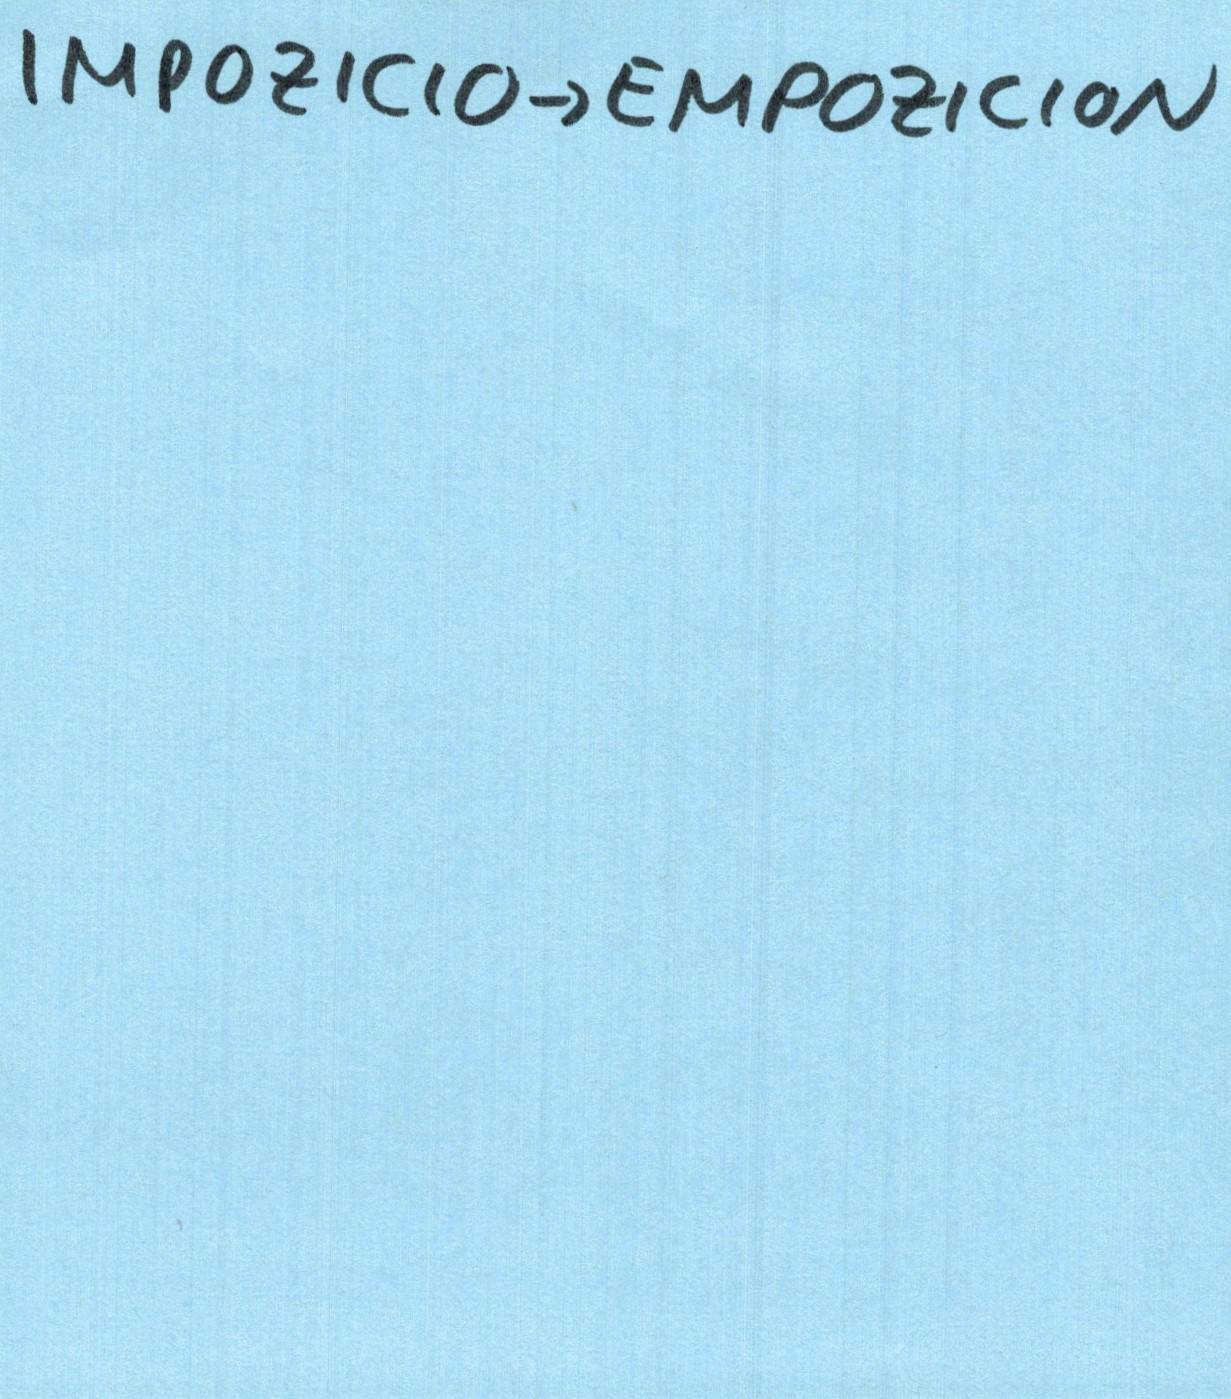 IMPOZICIO→EMPOZICION